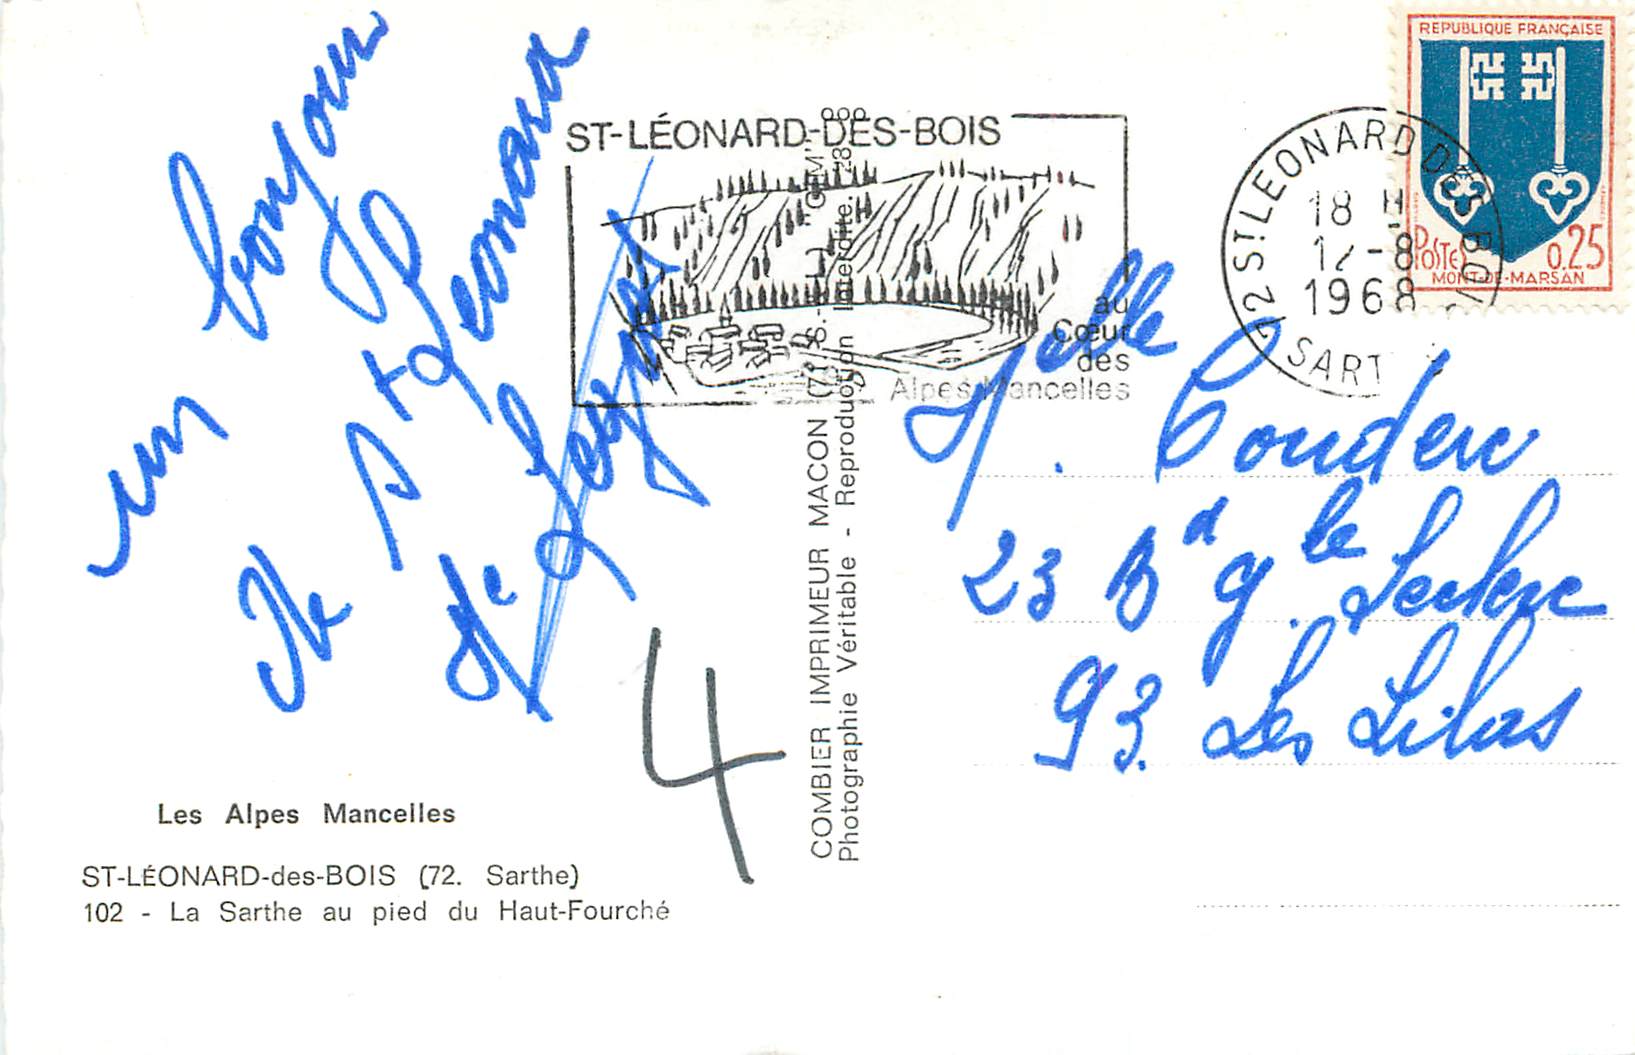 un bonjour
de St Leonard
ST-LÉONARD-DES-BOIS
au
Cœur
des
Alpes Mancelles
REPUBLIQUE FRANÇAISE
POSTES 0,25
MONT-DE-MARSAN
72 ST LEONARD DES BOIS
18 H
12-8
1968
SARTHE
Melle Couderc
23 Bd g. le Leclerc
93. Les Lilas
4
COMBIER IMPRIMEUR MACON
Photographie Véritable - Reproduction Interdite.
Les Alpes Mancelles
ST-LÉONARD-des-BOIS (72. Sarthe)
102 - La Sarthe au pied du Haut-Fourché